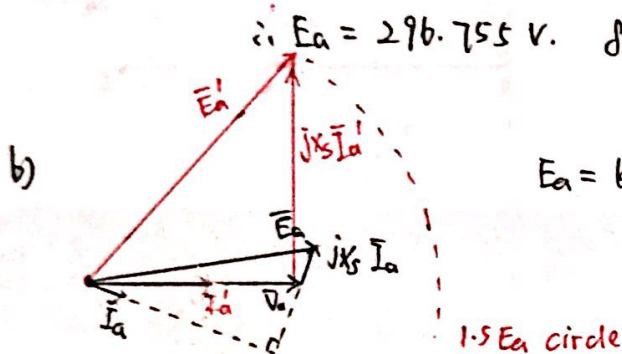 ∴ Ea = 296.755 V.
Ēa'
jXs Īa'
b)
Ea =
Ēa
jXs Īa
Īa'
V̄a
Īa
1.5 Ea circle